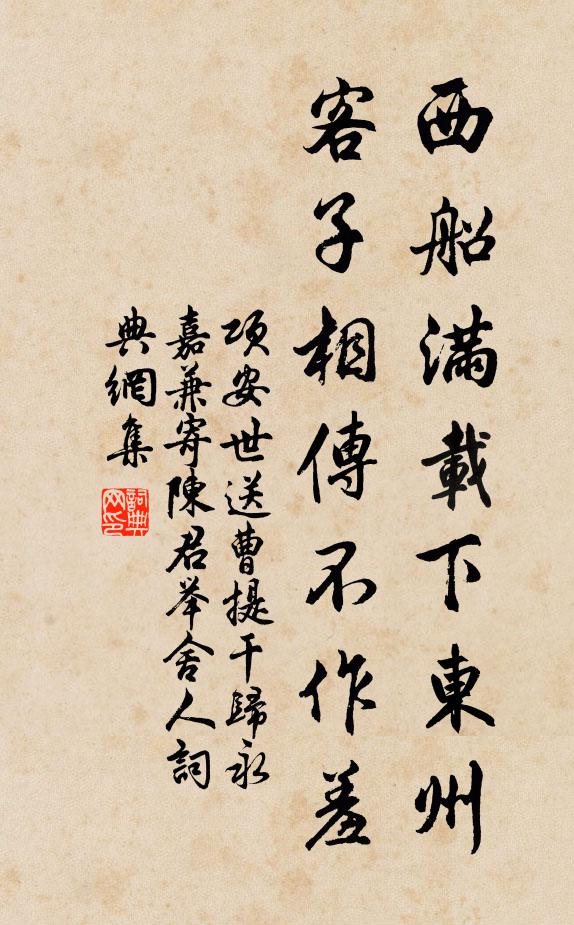 西船滿載下東州
客子相傳不作羞
项安世送曹提干歸永
嘉兼寄陳君举舍人詞
典網集
詞典网印